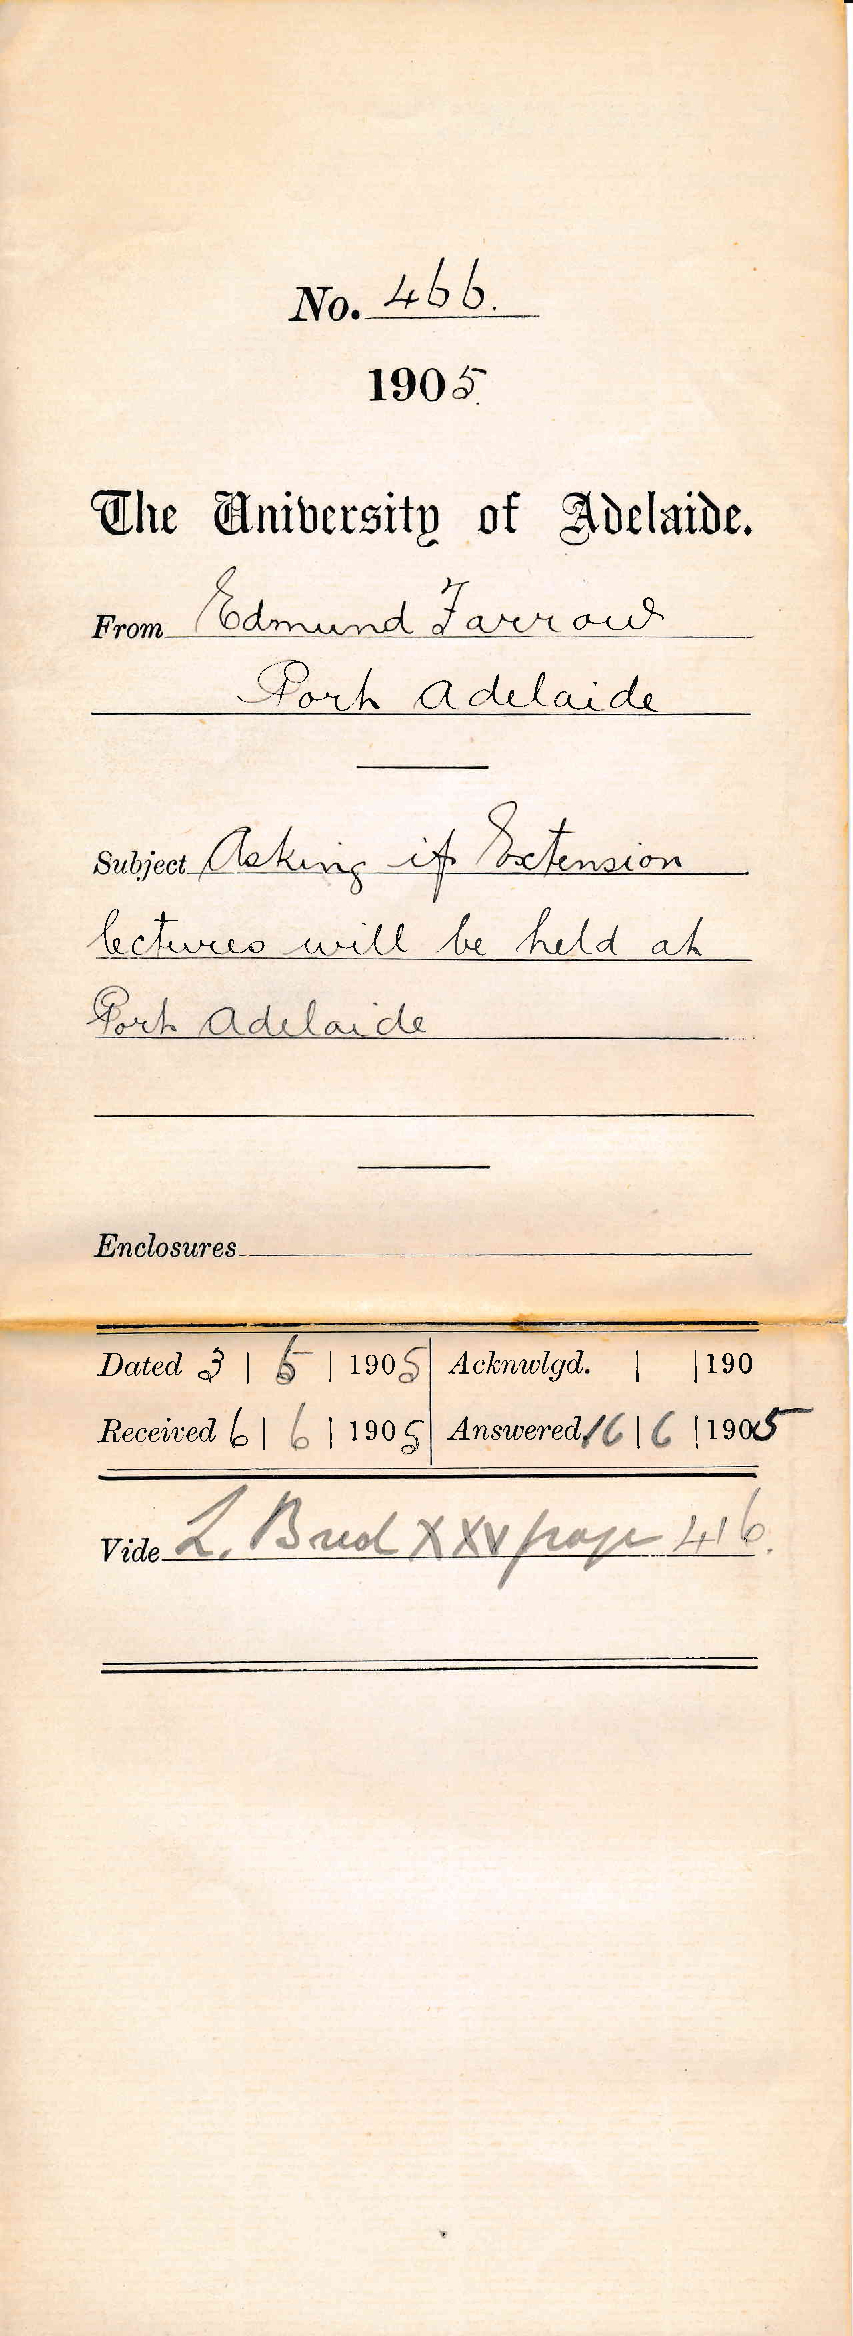 No. 466.
1905.
The University of Adelaide.
From Edmund Farrow
Port Adelaide
Subject Asking if Extension
lectures will be held at
Port Adelaide
Enclosures
Dated 3 | | 1905 Acknwlgd. | | 190
Received 6 | 6 | 1905 Answered. 16 | 6 | 1905
Vide L. XXV page 416.